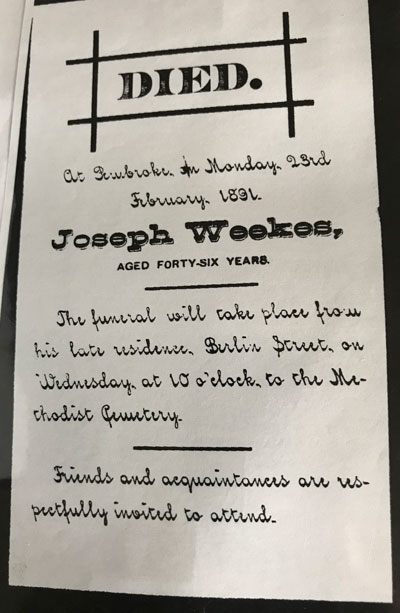 DIED.
At Pembroke, on Monday, 23rd
February, 1891.
Joseph Weekes,
AGED FORTY-SIX YEARS.
The funeral will take place from
his late residence, Berlin Street, on
Wednesday, at 10 o'clock, to the Me-
thodist Cemetery.
Friends and acquaintances are res-
pectfully invited to attend.